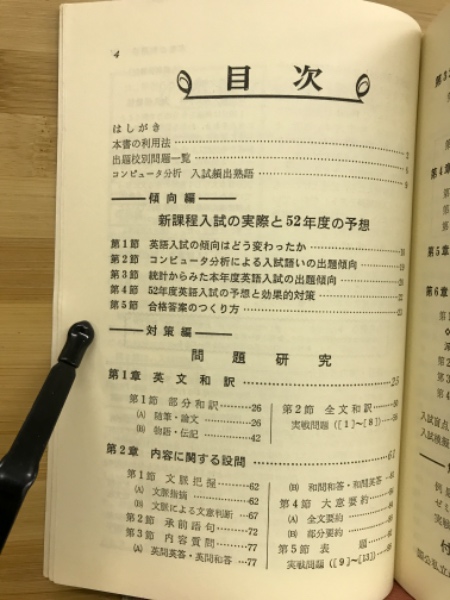 4
目次
はしがき
本書の利用法
出題校別問題一覧
コンピュータ分析 入試頻出熟語
傾向編
新課程入試の実際と52年度の予想
第1節 英語入試の傾向はどう変わったか
第2節 コンピュータ分析による入試語いの出題傾向
第3節 統計からみた本年度英語入試の出題傾向
第4節 52年度英語入試の予想と効果的対策
第5節 合格答案のつくり方
対策編
問題研究
第1章 英文和訳 25
第1節 部分和訳 26
(A) 随筆・論文 26
(B) 物語・伝記 42
第2節 全文和訳
実戦問題([1]~[8])
第2章 内容に関する設問 61
第1節 文脈把握 62
(A) 文脈指摘 62
(B) 文脈による文意判断 67
第2節 承前語句 72
第3節 内容質問 77
(A) 英問英答・英問和答 77
(B) 和問和答・和問英答
第4節 大意要約
(A) 全文要約
(B) 部分要約
第5節 表題
実戦問題([9]~[13])
第3
第4章
第5章
第6章